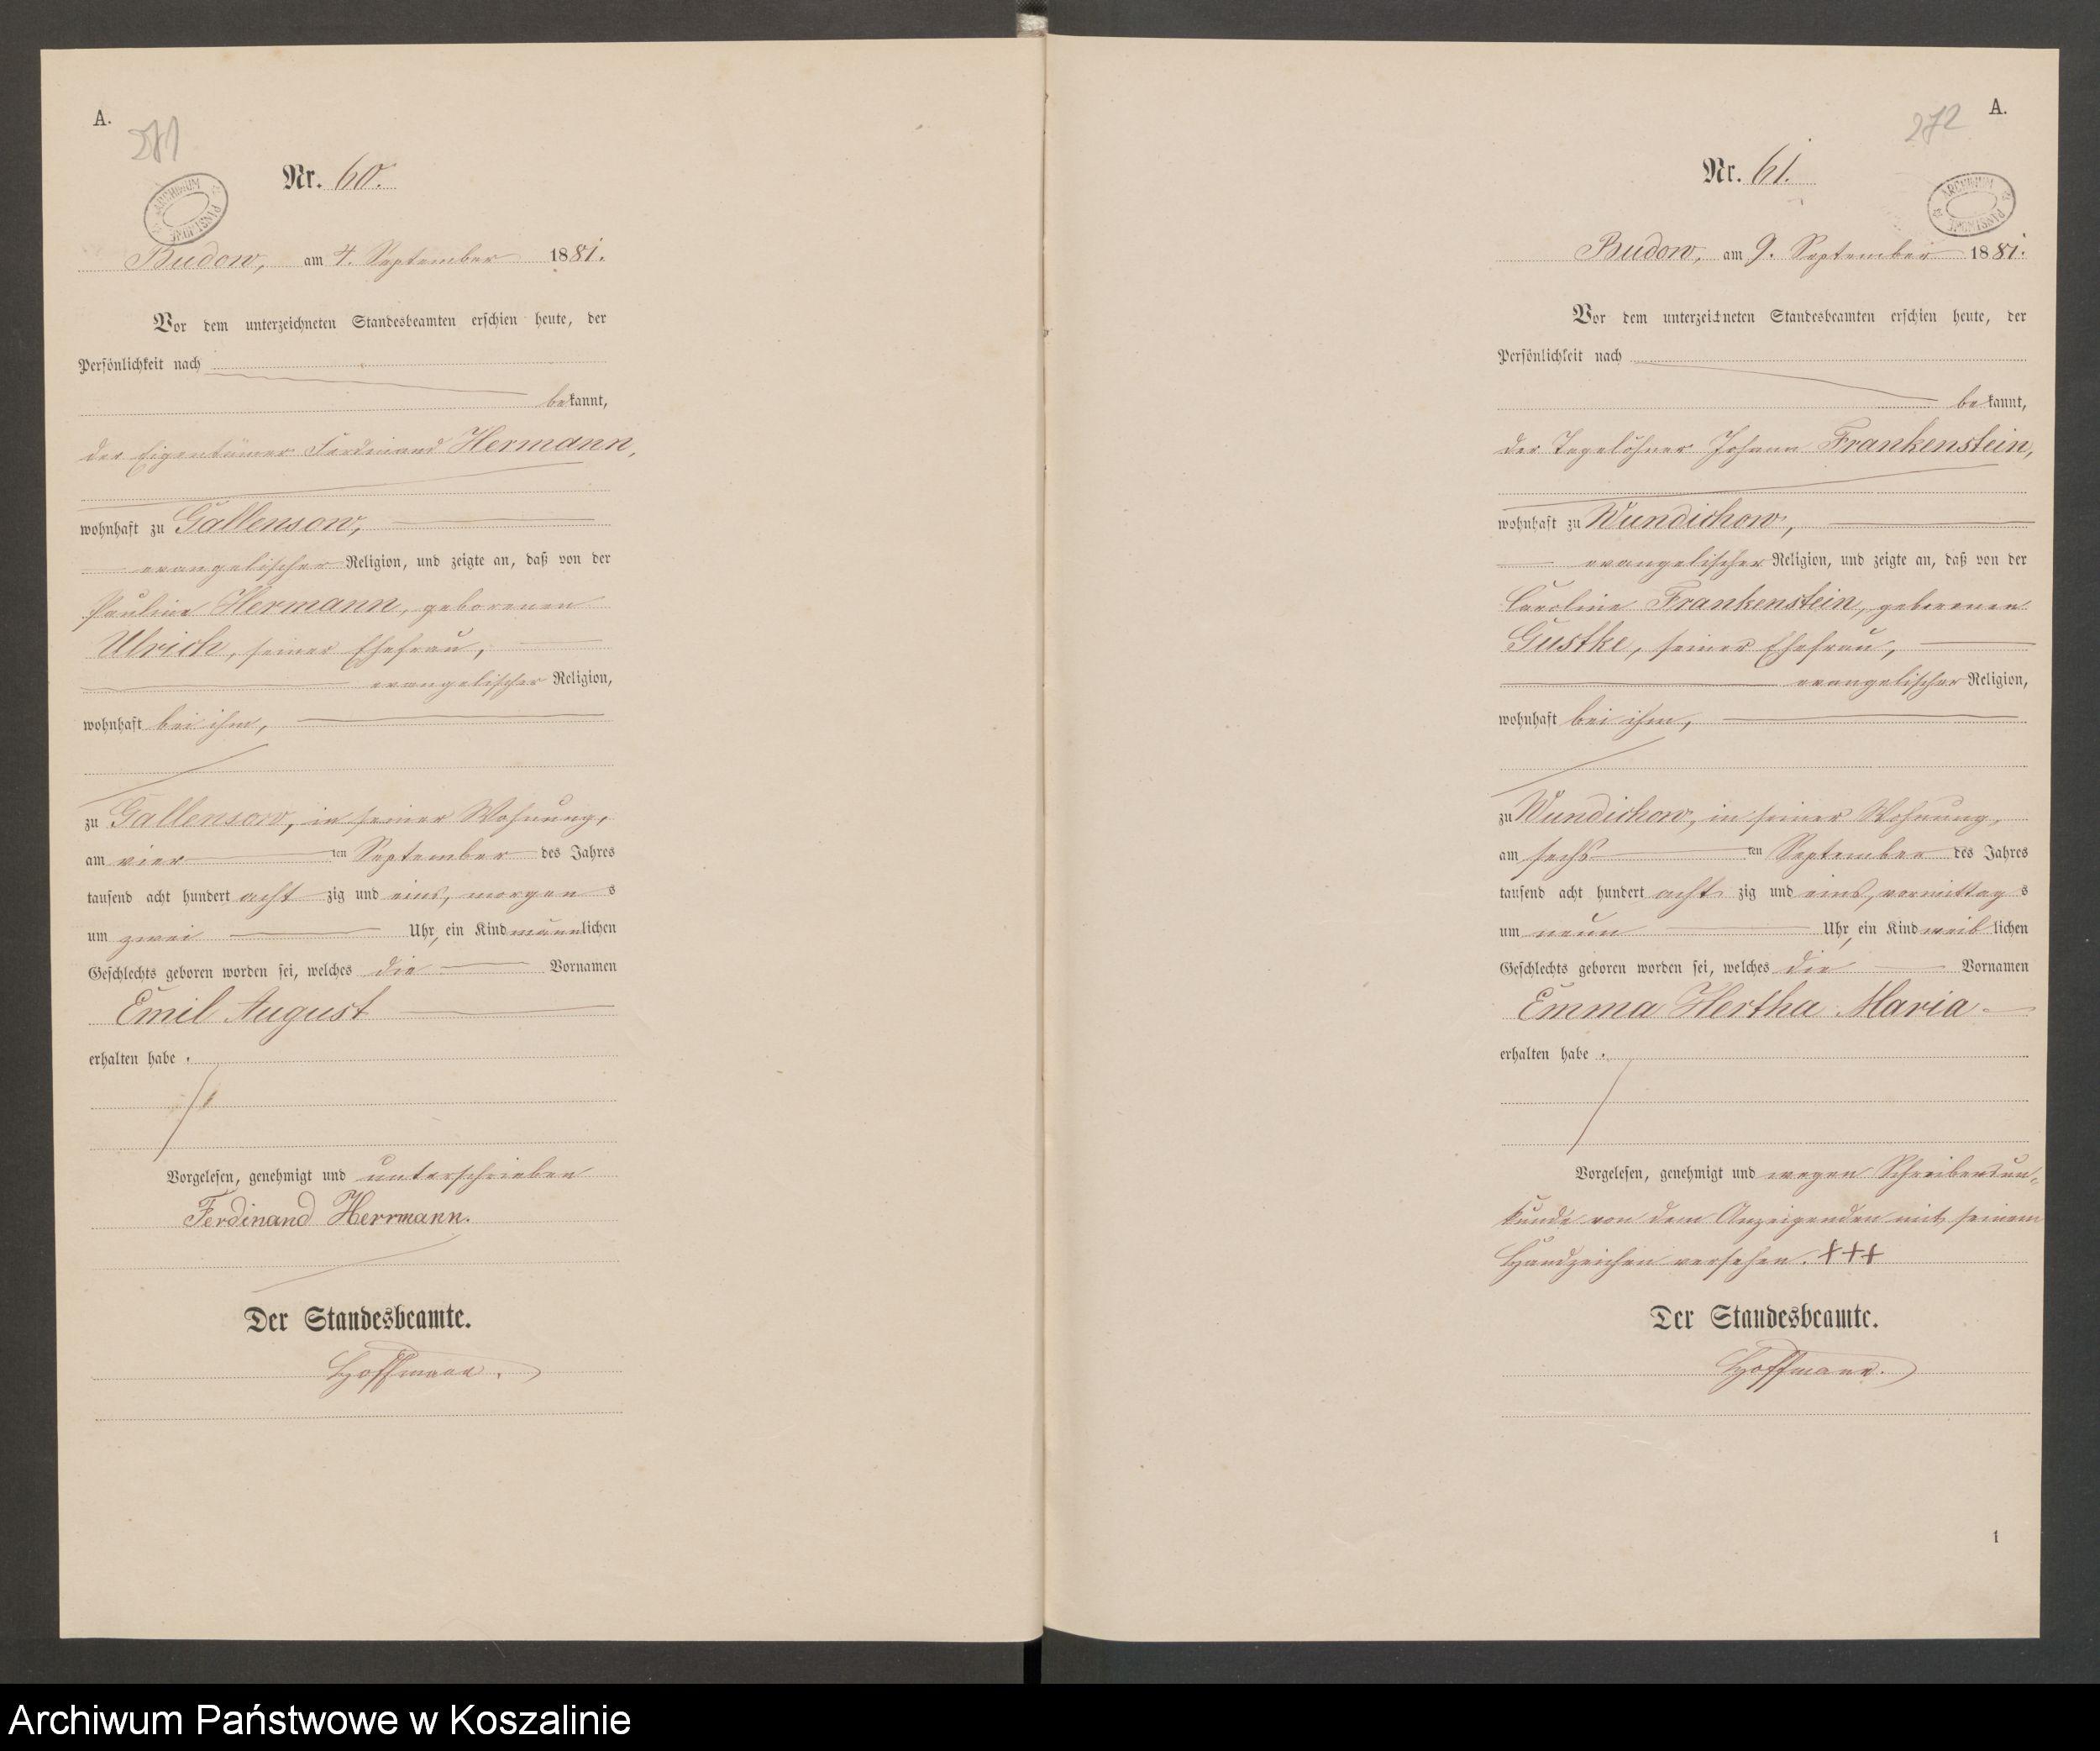 A.
271
ARCHIWUM PAŃSTWOWE
Nr. 60.
Budow, am 4. September 1881.
Vor dem unterzeichneten Standesbeamten erschien heute, der
Persönlichkeit nach
bekannt,
der Eigentümer Ferdinand Hermann,
wohnhaft zu Gallensow,
evangelischer Religion, und zeigte an, daß von der
Pauline Hermann, geborenen
Ulrich, seiner Ehefrau,
evangelischer Religion,
wohnhaft bei ihm,
zu Gallensow, in seiner Wohnung,
am vier ten September des Jahres
tausend acht hundert acht zig und eins, morgens
um zwei Uhr, ein Kind männlichen
Geschlechts geboren worden sei, welches die Vornamen
Emil August
erhalten habe.
Vorgelesen, genehmigt und unterschrieben
Ferdinand Herrmann.
Der Standesbeamte.
Hoffmann.
A.
272
ARCHIWUM PAŃSTWOWE
Nr. 61.
Budow, am 9. September 1881.
Vor dem unterzeichneten Standesbeamten erschien heute, der
Persönlichkeit nach
bekannt,
der Tagelöhner Johann Frankenstein,
wohnhaft zu Wundichow,
evangelischer Religion, und zeigte an, daß von der
Caroline Frankenstein, geborenen
Gustke, seiner Ehefrau,
evangelischer Religion,
wohnhaft bei ihm,
zu Wundichow, in seiner Wohnung,
am sechs ten September des Jahres
tausend acht hundert acht zig und eins, vormittags
um neun Uhr, ein Kind weiblichen
Geschlechts geboren worden sei, welches die Vornamen
Emma Hertha Maria
erhalten habe.
Vorgelesen, genehmigt und wegen Schreibensun-
kunde von dem Anzeigenden mit seinem
Handzeichen versehen. +++
Der Standesbeamte.
Hoffmann.
1
Archiwum Państwowe w Koszalinie